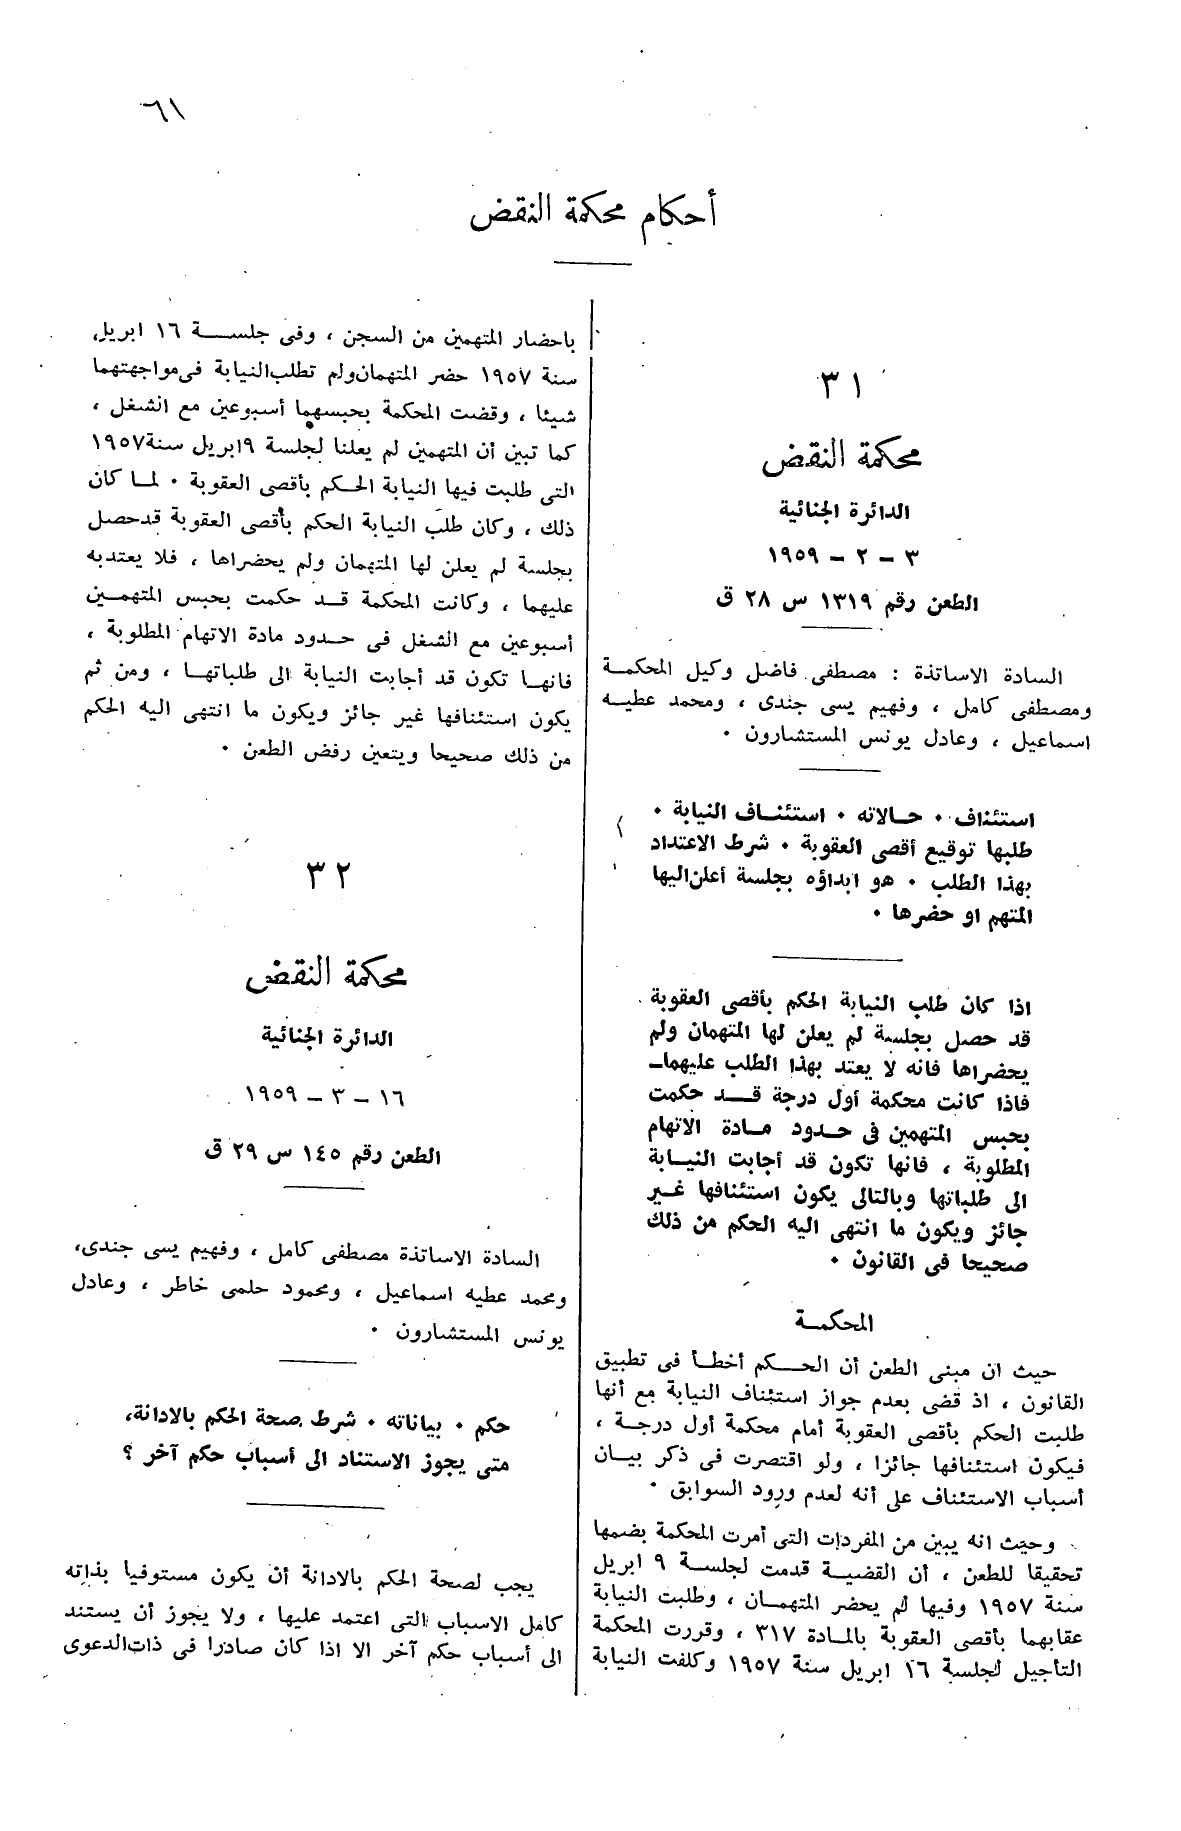 ٦١
أحكام محكمة النقض
٣١
محكمة النقض
الدائرة الجنائية
٣ – ٢ – ١٩٥٩
الطعن رقم ١٣١٩ س ٢٨ ق
السادة الاساتذة : مصطفى فاضل وكيل المحكمة
ومصطفى كامل ، وفهيم يسى جندى ، ومحمد عطيه
اسماعيل ، وعادل يونس المستشارون ٠
استئناف ٠ حالاته ٠ استئناف النيابة ٠
طلبها توقيع أقصى العقوبة ٠ شرط الاعتداد
بهذا الطلب ٠ هو ابداؤه بجلسة أعلن اليها
المتهم او حضرها ٠
اذا كان طلب النيابة الحكم بأقصى العقوبة
قد حصل بجلسة لم يعلن لها المتهمان ولم
يحضراها فانه لا يعتد بهذا الطلب عليهما–
فاذا كانت محكمة أول درجة قد حكمت
بحبس المتهمين فى حدود مادة الاتهام
المطلوبة ، فانها تكون قد أجابت النيابة
الى طلباتها وبالتالى يكون استئنافها غير
جائز ويكون ما انتهى اليه الحكم من ذلك
صحيحا فى القانون ٠
المحكمة
حيث ان مبنى الطعن أن الحكم أخطأ فى تطبيق
القانون ، اذ قضى بعدم جواز استئناف النيابة مع أنها
طلبت الحكم بأقصى العقوبة أمام محكمة أول درجة ،
فيكون استئنافها جائزا ، ولو اقتصرت فى ذكر بيان
أسباب الاستئناف على أنه لعدم ورود السوابق ٠
وحيث انه يبين من المفردات التى أمرت المحكمة بضمها
تحقيقا للطعن ، أن القضية قدمت لجلسة ٩ ابريل
سنة ١٩٥٧ وفيها لم يحضر المتهمان ، وطلبت النيابة
عقابهما بأقصى العقوبة بالمادة ٣١٧ ، وقررت المحكمة
التأجيل لجلسة ١٦ ابريل سنة ١٩٥٧ وكلفت النيابة
باحضار المتهمين من السجن ، وفى جلسة ١٦ ابريل
سنة ١٩٥٧ حضر المتهمان ولم تطلب النيابة فى مواجهتهما
شيئا ، وقضت المحكمة بحبسهما أسبوعين مع الشغل ،
كما تبين أن المتهمين لم يعلنا لجلسة ٩ ابريل سنة ١٩٥٧
التى طلبت فيها النيابة الحكم بأقصى العقوبة ٠ لما كان
ذلك ، وكان طلب النيابة الحكم بأقصى العقوبة قد حصل
بجلسة لم يعلن لها المتهمان ولم يحضراها ، فلا يعتد به
عليهما ، وكانت المحكمة قد حكمت بحبس المتهمين
أسبوعين مع الشغل فى حدود مادة الاتهام المطلوبة ،
فانها تكون قد أجابت النيابة الى طلباتها ، ومن ثم
يكون استئنافها غير جائز ويكون ما انتهى اليه الحكم
من ذلك صحيحا ويتعين رفض الطعن ٠
٣٢
محكمة النقض
الدائرة الجنائية
١٦ – ٣ – ١٩٥٩
الطعن رقم ١٤٥ س ٢٩ ق
السادة الاساتذة مصطفى كامل ، وفهيم يسى جندى،
ومحمد عطيه اسماعيل ، ومحمود حلمى خاطر ، وعادل
يونس المستشارون ٠
حكم ٠ بياناته ٠ شرط صحة الحكم بالادانة،
متى يجوز الاستناد الى أسباب حكم آخر ؟
يجب لصحة الحكم بالادانة أن يكون مستوفيا بذاته
كامل الاسباب التى اعتمد عليها ، ولا يجوز أن يستند
الى أسباب حكم آخر الا اذا كان صادرا فى ذات الدعوى